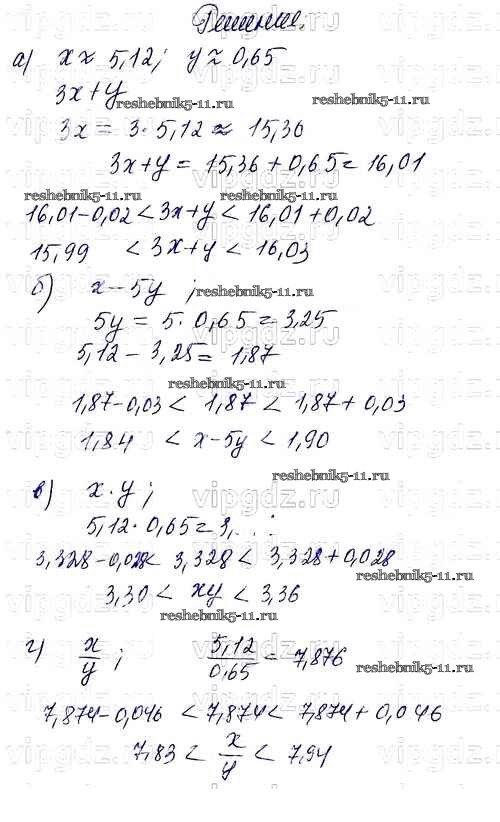 Решение.
а) x ≈ 5,12; y ≈ 0,65
3x+y
reshebnik5-11.ru reshebnik5-11.ru
3x = 3·5,12 ≈ 15,36
3x+y = 15,36+0,65 = 16,01
reshebnik5-11.ru reshebnik5-11.ru
16,01-0,02 < 3x+y < 16,01+0,02
15,99 < 3x+y < 16,03
б) x-5y ; reshebnik5-11.ru
5y = 5·0,65 = 3,25
5,12-3,25 = 1,87
reshebnik5-11.ru
1,87-0,03 < 1,87 < 1,87+0,03
1,84 < x-5y < 1,90
reshebnik5-11.ru
в) x·y;
5,12·0,65 = 3,...
3,328-0,028 < 3,328 < 3,328+0,028
reshebnik5-11.ru
3,30 < xy < 3,36
reshebnik5-11.ru
г) x/y ; 5,12/0,65 = 7,876
7,874-0,046 < 7,874 < 7,874+0,046
7,83 < x/y < 7,94
reshebnik5-11.ru
vipgdz.ru